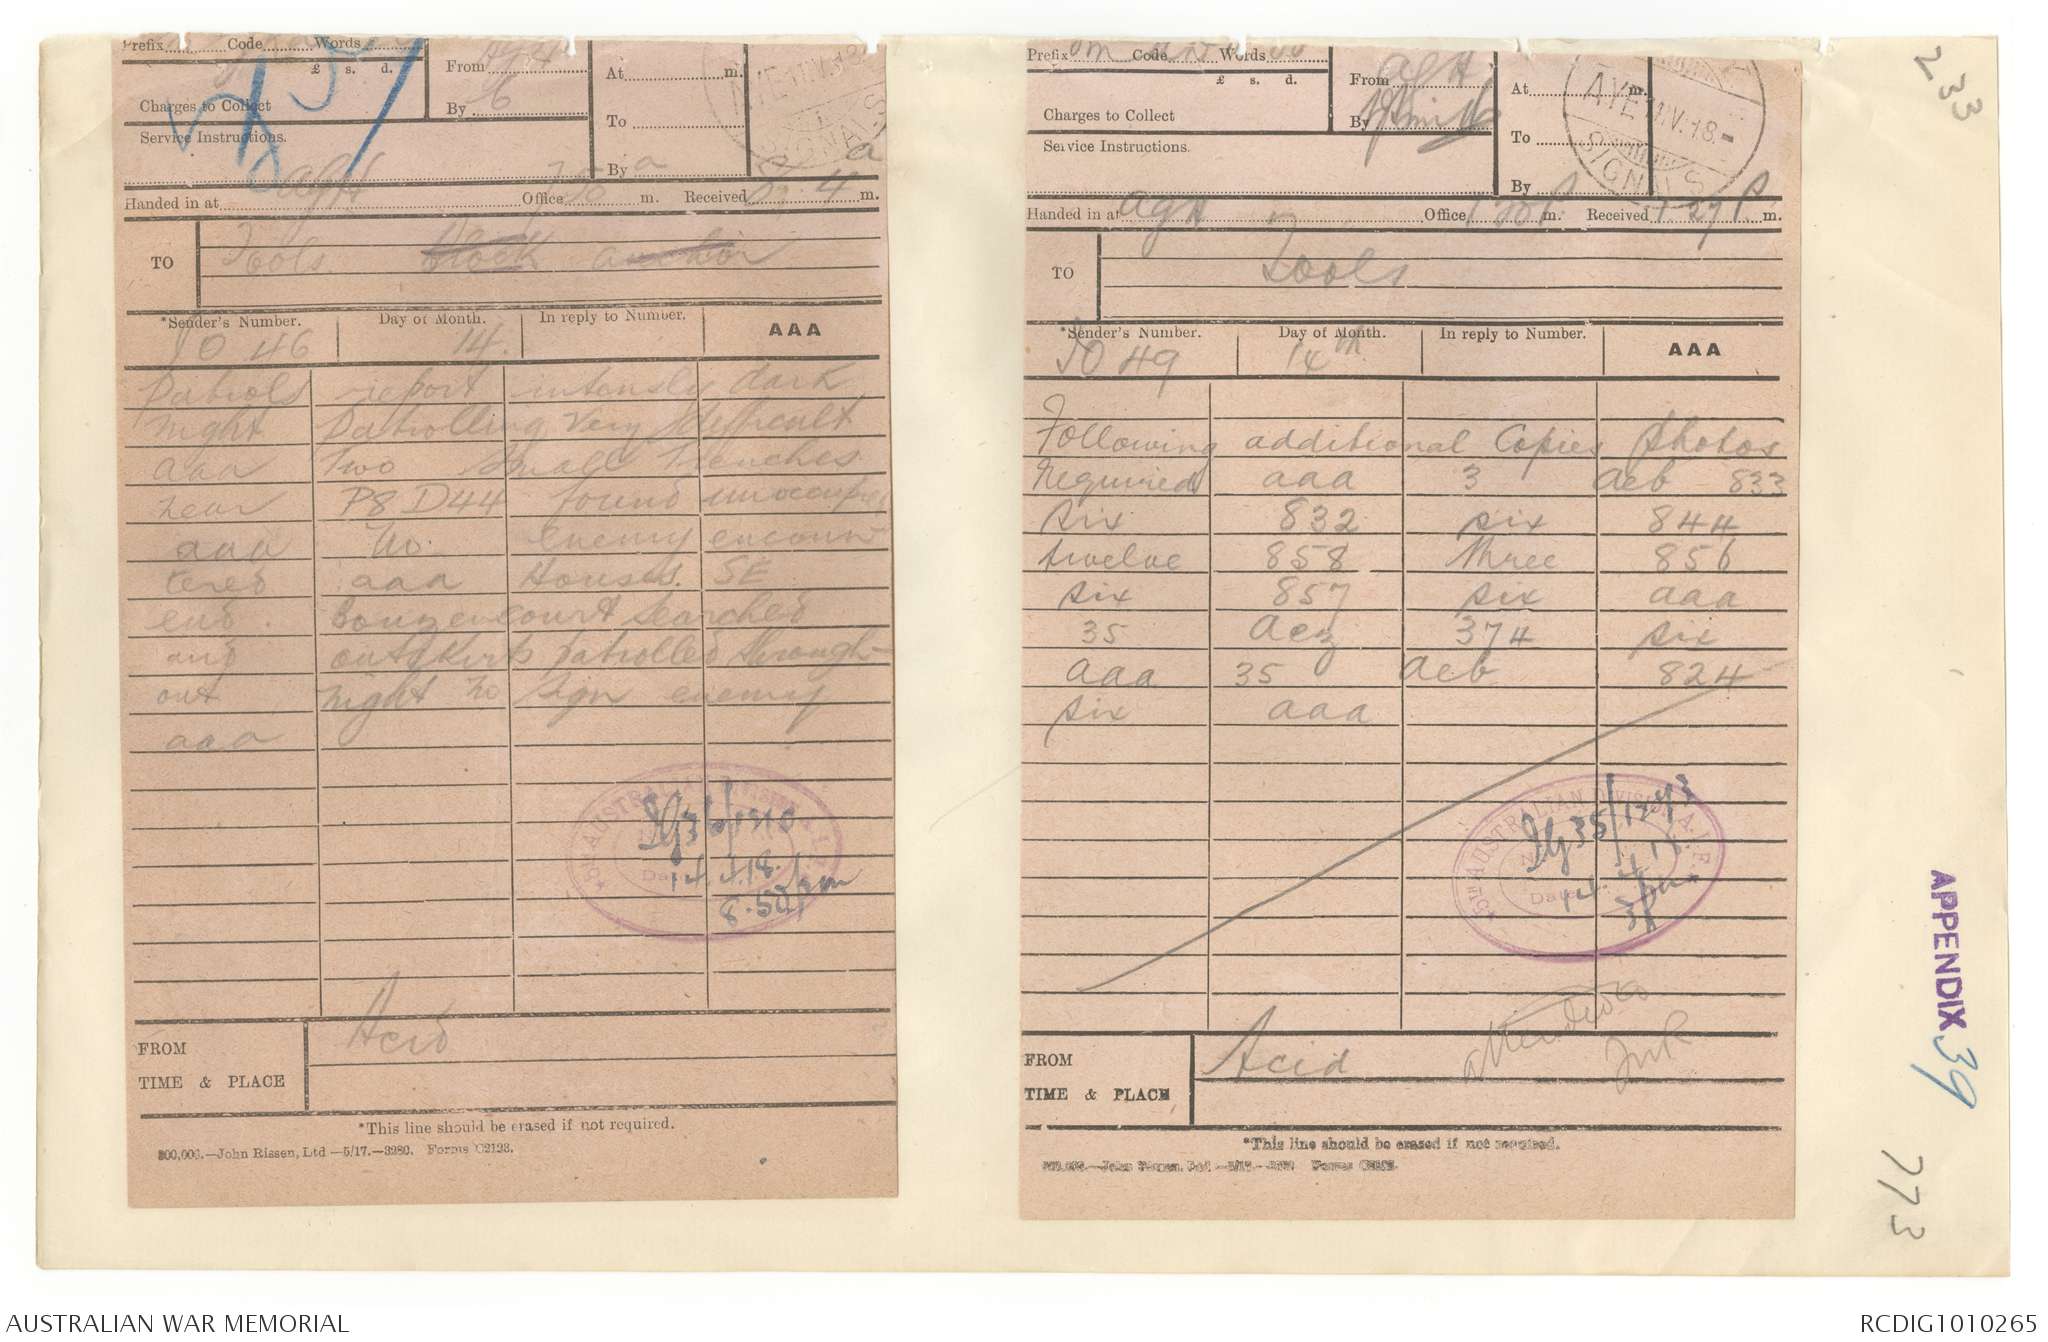 Prefix Code Words
£ s. d.
Charges to Collect
Service Instructions.
From
By 6
At m.
To
By
AYE 14.IV.18
SIGNALS
Handed in at agH Office m. Received m.
TO Tools
*Sender's Number. Day of Month. In reply to Number. AAA
JO 46 14.
Patrols report intensly dark
night Patrolling very difficult
aaa Two small trenches
near P8 D44 found unoccupied
aaa No enemy encoun
tered aaa Houses. SE
end. Bouzencourt searched
and outskirts patrolled through-
out night no sign enemy
aaa
5TH AUSTRALIAN DIVISION A.I.F.
14.4.18.
8.50 pm
FROM Acid
TIME & PLACE
*This line should be erased if not required.
300,000.—John Rissen, Ltd —5/17.—3280. Forms C2123.
Prefix Code Words
£ s. d.
Charges to Collect
Service Instructions.
From agH
By
At m.
To
By
AYE 14.IV.18.
SIGNALS
Handed in at agH Office m. Received 7 27 P m.
TO Tools
*Sender's Number. Day of Month. In reply to Number. AAA
JO 49 14th
Following additional Copies photos
required aaa 3 Aeb 833
six 832 six 844
twelve 858 three 856
six 857 six aaa
35 Aez 374 six
aaa 35 aeb 824
six aaa
5TH AUSTRALIAN DIVISION A.I.F.
14.4.18.
FROM Acid
TIME & PLACE
*This line should be erased if not required.
233
APPENDIX 39
773
AUSTRALIAN WAR MEMORIAL
RCDIG1010265